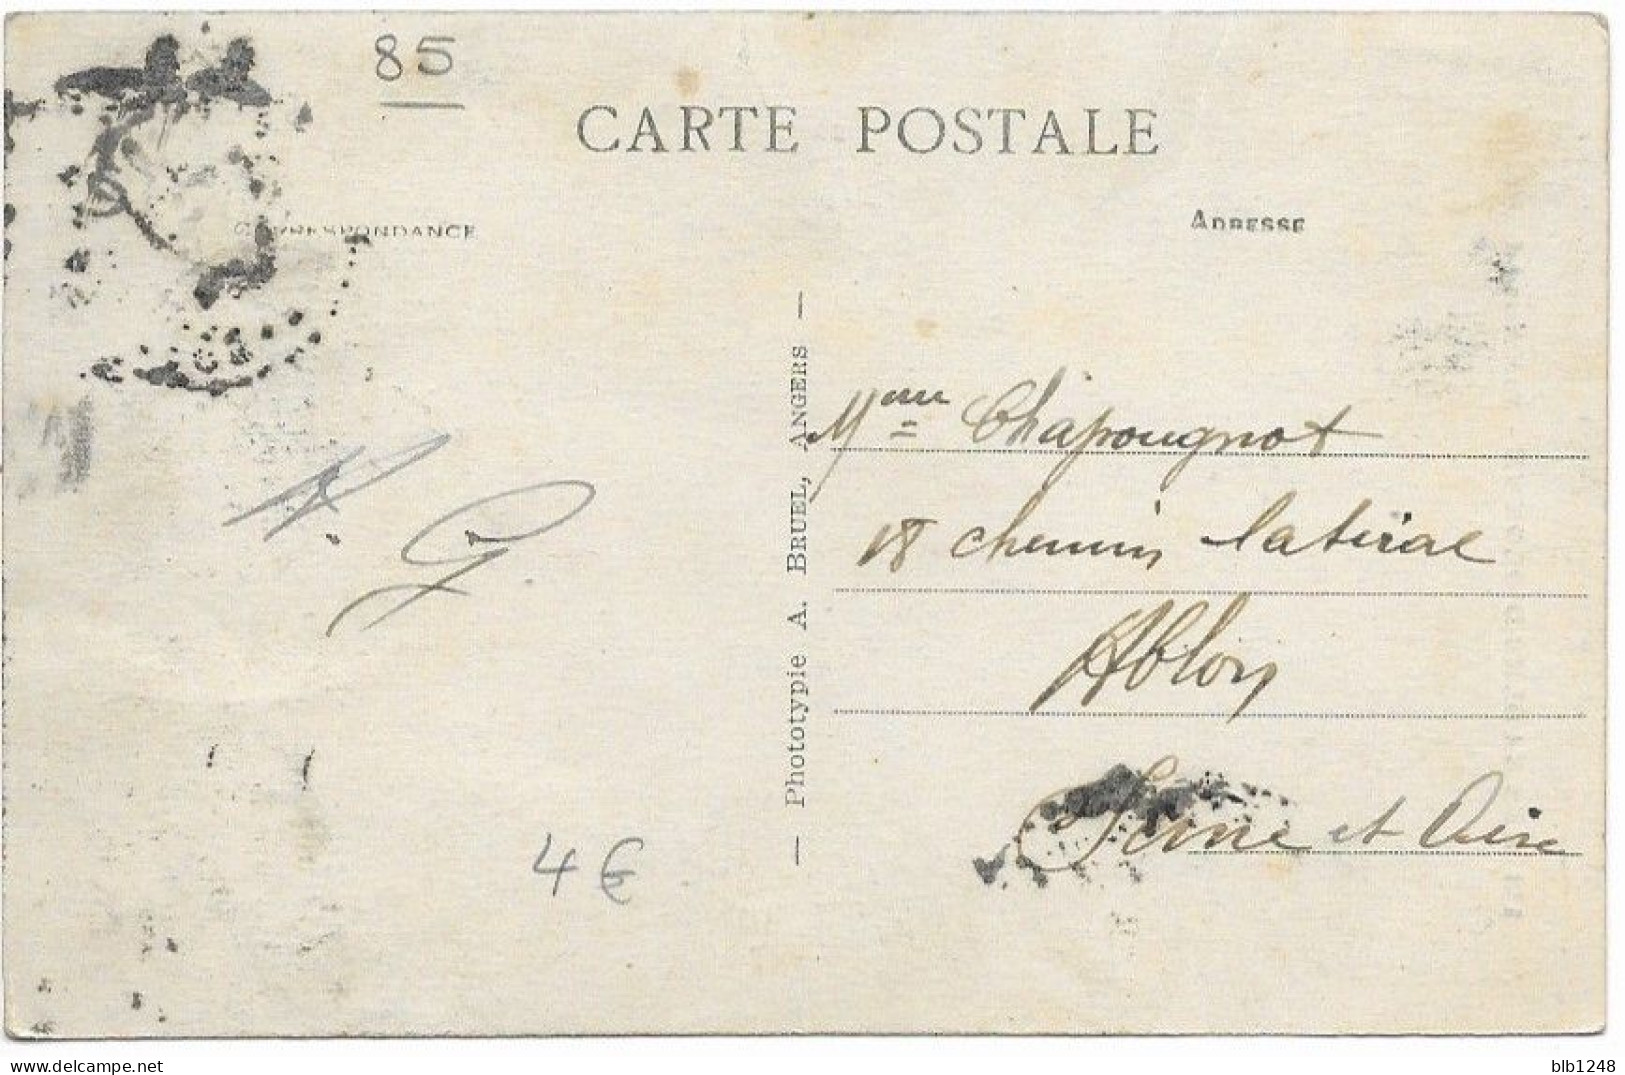 85
CARTE POSTALE
CORRESPONDANCE
ADRESSE
— Phototypie A. BRUEL, ANGERS —
Mme Chapougnot
18 chemin latéral
Ablon
Seine et Oise
G.
4€
blb1248